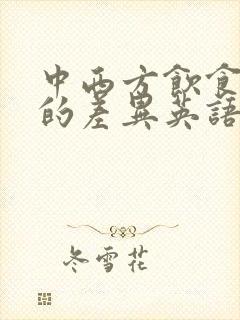 中西方飲食
的差異英語
冬雪花